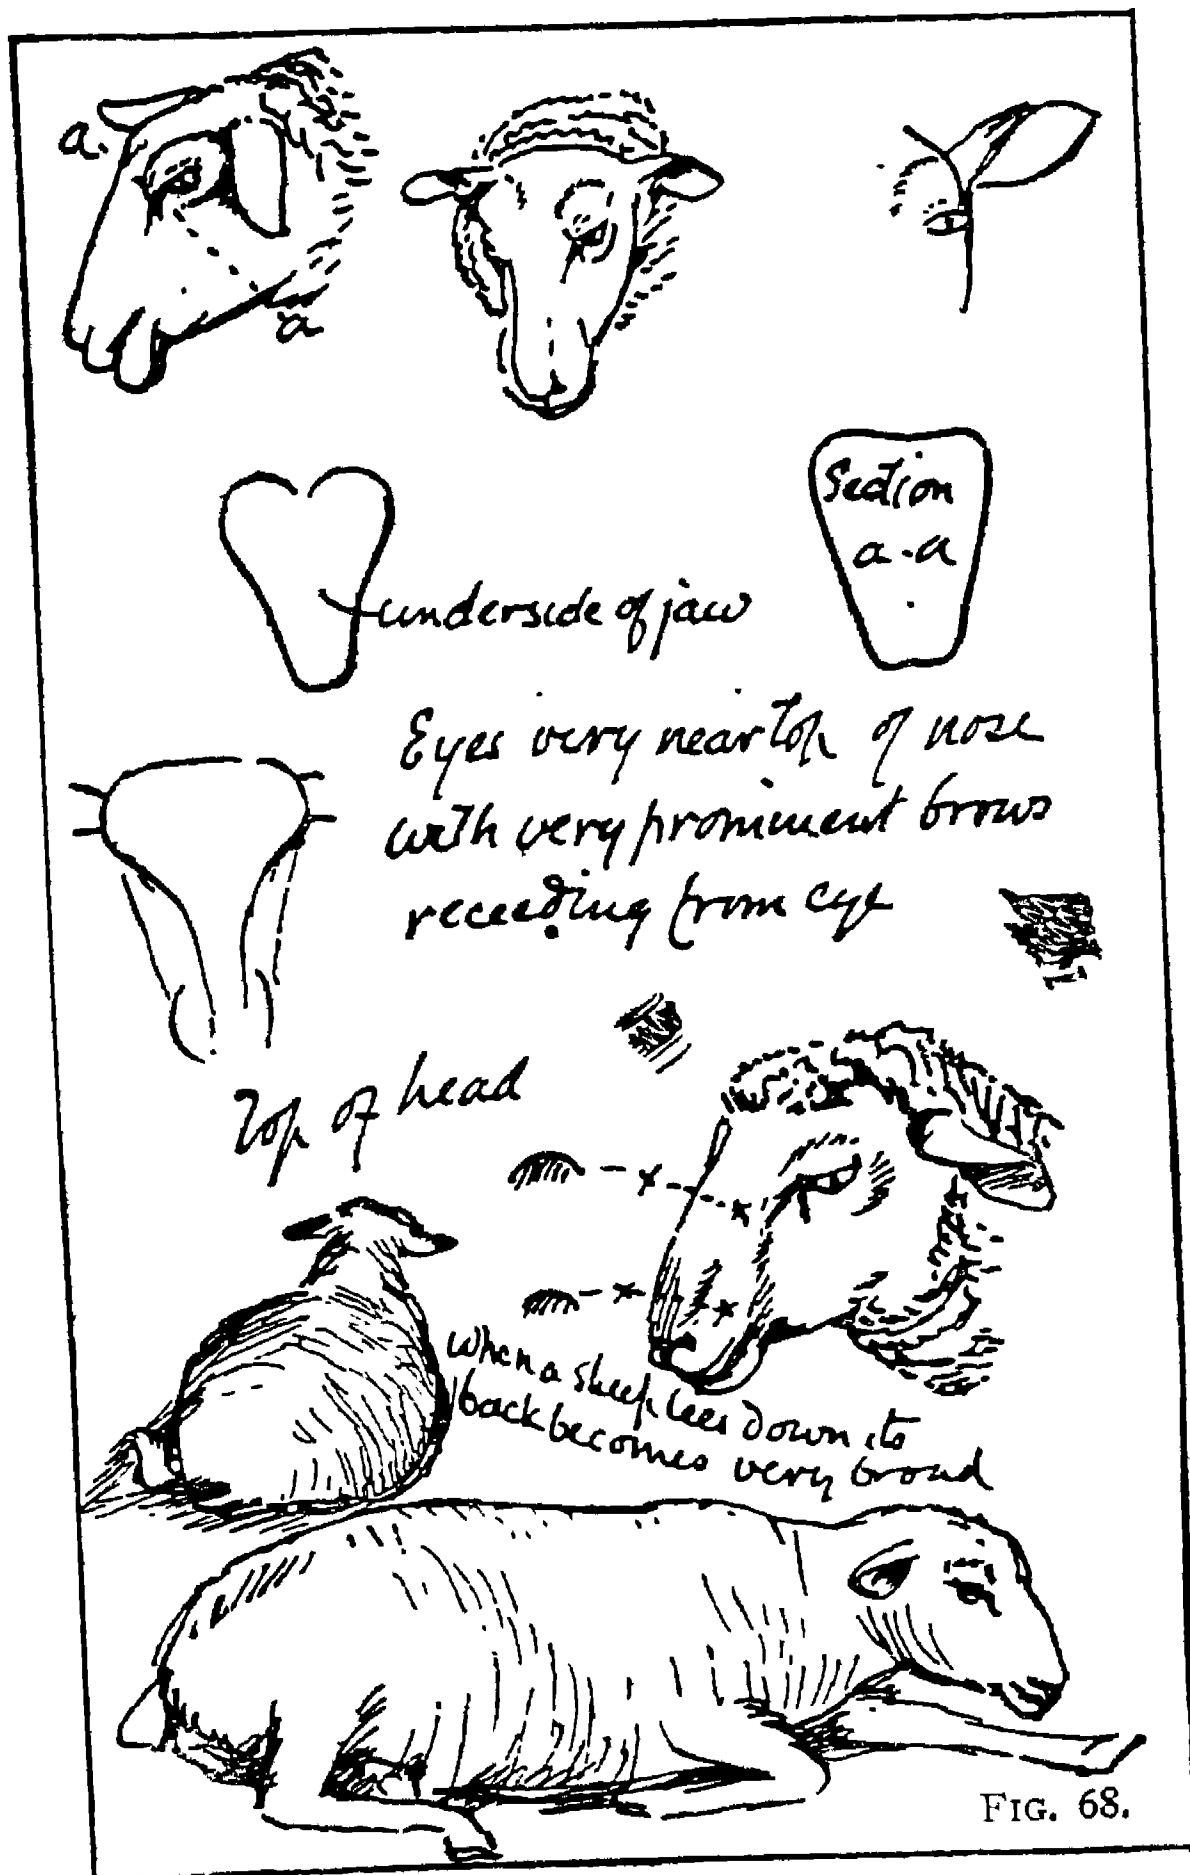 a.
a
Section
a-a
underside of jaw
Eyes very near top of nose
with very prominent brows
receeding from eye
Top of head
x x
x x
When a sheep lies down its
back becomes very broad
FIG. 68.